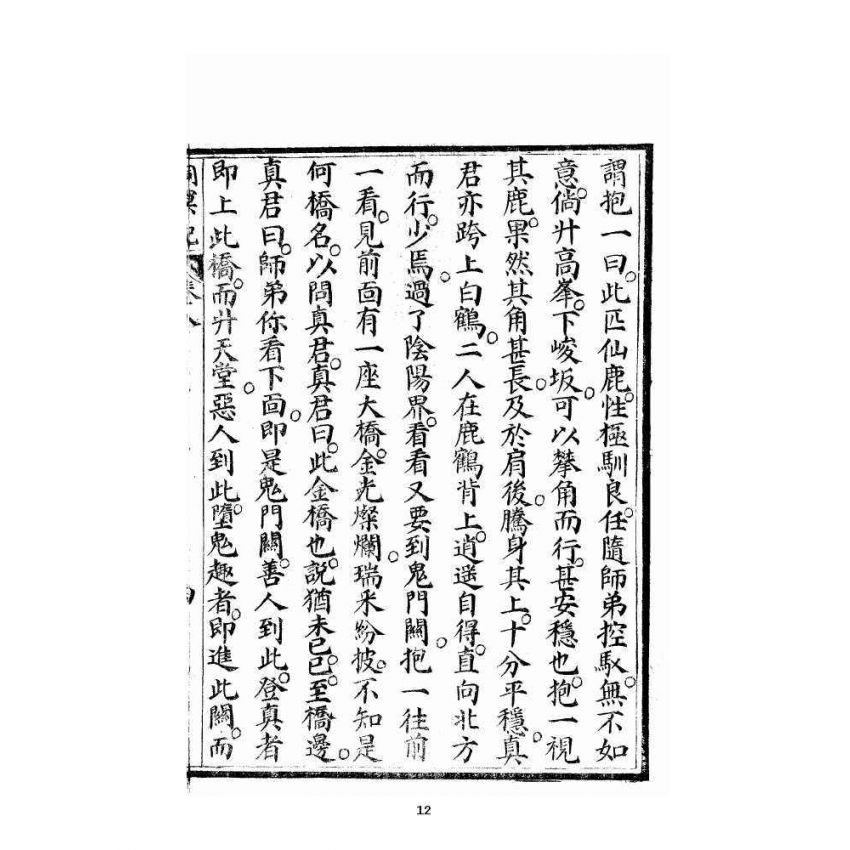 謂抱一曰。此匹仙鹿。性極馴良。任隨師弟控馭。無不如
意。倘廾高峯。下峻坂。可以攀角而行。甚安穩也。抱一視
其鹿。果然其角甚長。及於肩後。騰身其上。十分平穩。真
君亦跨上白鶴。二人在鹿鶴背上。逍遥自得。直向北方
而行。少焉。過了陰陽界。看看又要到鬼門關。抱一往前
一看。見前靣有一座大橋。金光燦爛。瑞采紛披。不知是
何橋名。以問真君。真君曰。此金橋也。說猶未已。已至橋邊。
真君曰。師弟你看下靣。即是鬼門關。善人到此。登真者
即上此橋。而廾天堂。惡人到此。墮鬼趣者。即進此關。而
洞冥記 卷八
12